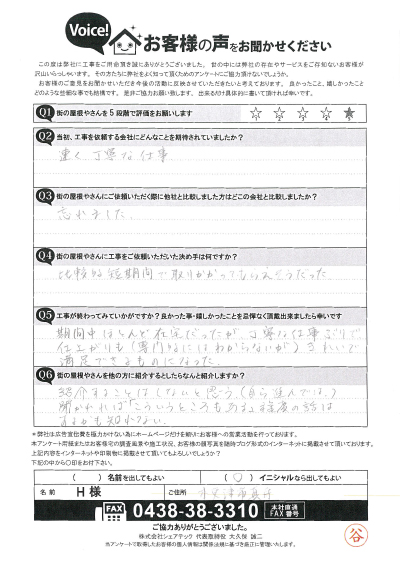 Voice!
お客様の声をお聞かせください
この度は弊社に工事をご用命頂き誠にありがとうございました。世の中には弊社の存在やサービスをご存知ないお客様が
沢山いらっしゃいます。その方たちに弊社をよく知って頂くためのアンケートにご協力頂けないでしょうか。
お客様のご意見をお聞かせいただき今後の活動に反映させていただきたいと考えております。良かったこと、嬉しかったこと
どのような些細な事でも結構です。是非ご協力お願い致します。出来るだけ具体的に書いて頂ければ幸いです。
Q1 街の屋根やさんを5段階で評価をお願いします
☆ ☆ ☆ ☆ ★
Q2 当初、工事を依頼する会社にどんなことを期待されていましたか？
速く、丁寧な仕事
Q3 街の屋根やさんにご依頼いただく際に他社と比較しました方はどこの会社と比較しましたか？
忘れました。
Q4 街の屋根やさんに工事をご依頼いただいた決め手は何ですか？
比較的短期間で取りかかってもらえそうだった
Q5 工事が終わってみていかがですか？良かった事・嬉しかったことを忌憚なく頂戴出来ましたら幸いです
期間中ほとんど在宅だったが、丁寧な仕事ぶりで
仕上がりも(専門的にはわからないが)きれいで
満足できるものになった
Q6 街の屋根やさんを他の方に紹介するとしたらなんと紹介しますか？
紹介することはしないと思う(自ら進んでは。)
聞かれれば「こういうところもある」程度の話は
するかも知れない
＊弊社は広告宣伝費を極力かけない為にホームページだけを頼りにお客様への営業活動を行っております。
本アンケート用紙またはお客様宅の調査画像や施工状況、お客様の顔写真を随時ブログ形式のインターネットに掲載させて頂いております。
上記内容をインターネットや印刷物に掲載させて頂いてもよろしいでしょうか？
下記の中から〇印をお付下さい。
( ) 名前を出してもよい ( ○ ) イニシャルなら出してもよい
名前 H様 ご住所
FAX 0438-38-3310 本社直通 FAX番号
ご協力ありがとうございました。
株式会社シェアテック 代表取締役 大久保 誠二
当アンケートで取得したお客様の個人情報は関係法規に基づき厳正に管理いたします。
谷